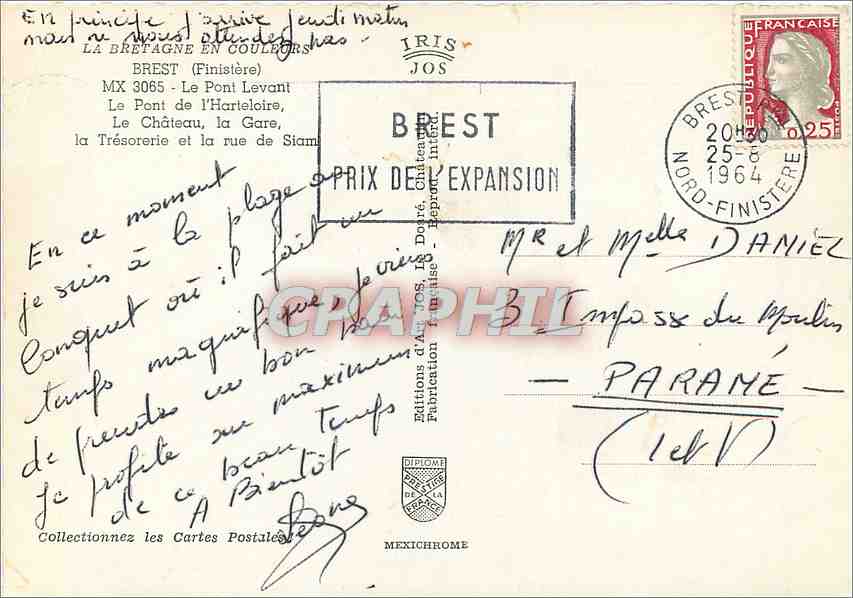 En principe j'arrive jeudi matin
mais ne nous attendez pas -
LA BRETAGNE EN COULEURS
BREST (Finistère)
MX 3065 - Le Pont Levant
Le Pont de l'Harteloire,
Le Château, la Gare,
la Trésorerie et la rue de Siam
IRIS
JOS
BREST
PRIX DE L'EXPANSION
REPUBLIQUE FRANÇAISE
POSTES
0.25
BREST
20H30
25-8
1964
NORD-FINISTERE
En ce moment
je suis à la plage au
Conquet où il fait un
temps magnifique, je viens
de prendre un bon bain
Je profite au maximum
de ce beau temps
A Bientôt
Editions d'Art JOS, Le Doaré, Châteaulin
Fabrication française - Reproduc. interd.
Mr et Melle DANIEL
3 Impass du Moulin
- PARAMÉ -
(I et V)
CPAPHIL
DIPLOME
PRESTIGE
DE LA
FRANCE
Collectionnez les Cartes Postales
MEXICHROME